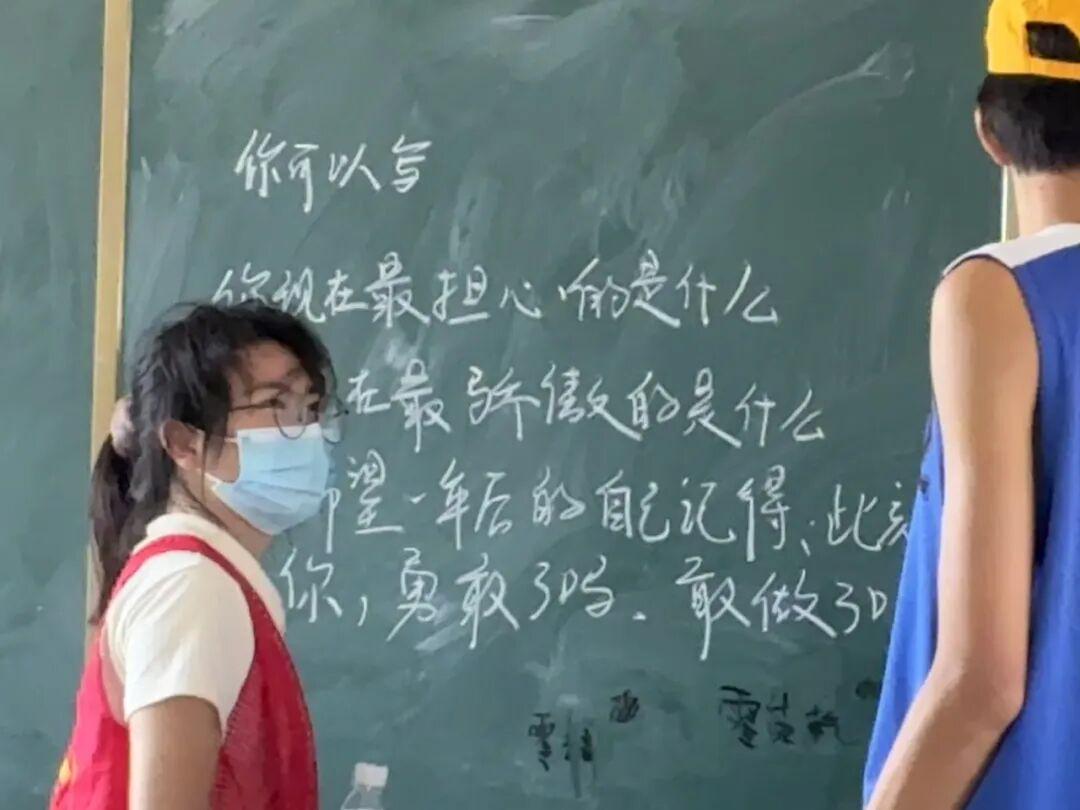 你可以写
你现在最担心的是什么
在最骄傲的是什么
望一年后的自己记得:此刻
你,勇敢了吗、敢做了